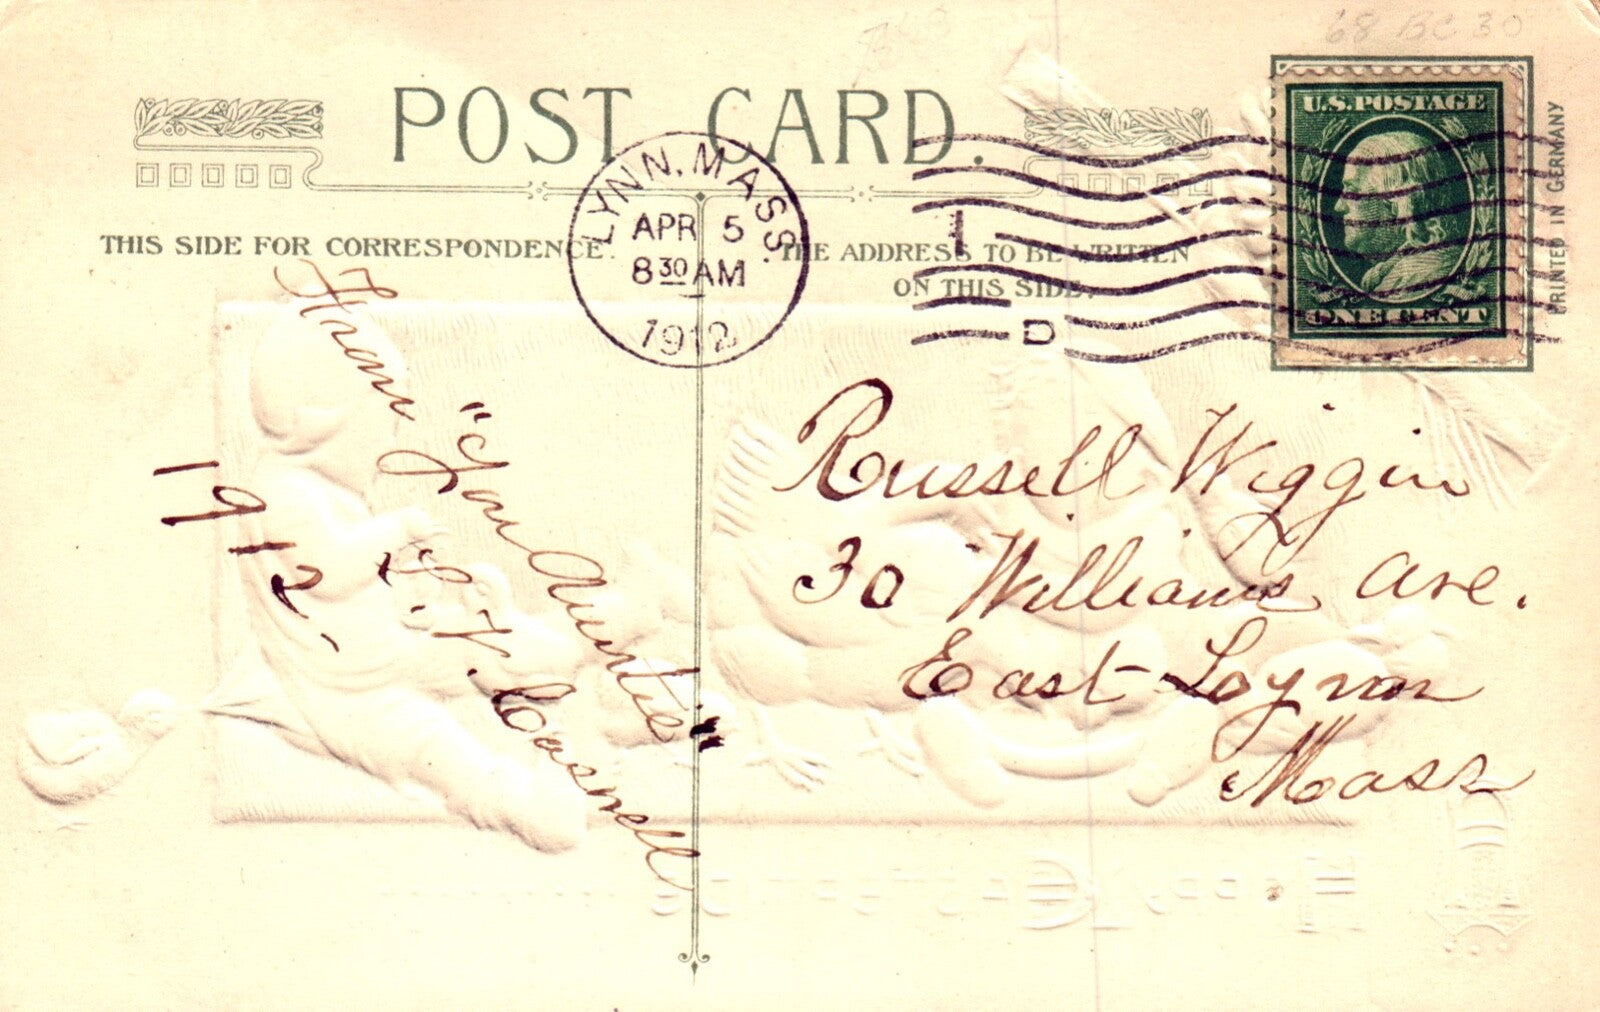 68 BC 30
POST CARD.
U.S. POSTAGE
ONE CENT
PRINTED IN GERMANY
LYNN, MASS.
APR 5
8 30 AM
1912
1
D
THIS SIDE FOR CORRESPONDENCE.
THE ADDRESS TO BE WRITTEN
ON THIS SIDE.
From
"Your Auntie"
L. V. Caswell
1912.
Russell Wiggin
30 Williams Ave.
East Lynn
Mass